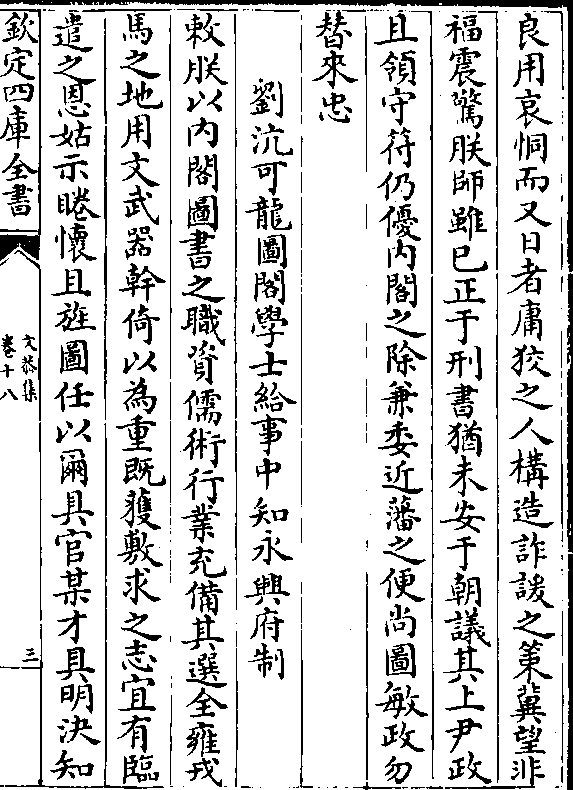 良用哀恫而又日者庸狡之人構造詐諼之策冀望非
福震驚朕師雖已正于刑書猶未安于朝議其上尹政
且領守符仍優內閣之除兼委近藩之便尚圖敏政勿
替來忠
劉沆可龍圖閣學士給事中知永興府制
敕朕以內閣圖書之職資儒術行業充備其選全雍戎
馬之地用文武器幹倚以為重既獲敷求之志宜有臨
遣之恩姑示睠懷且旌圖任以爾具官某才具明決知
欽定四庫全書
文恭集
卷十八
三